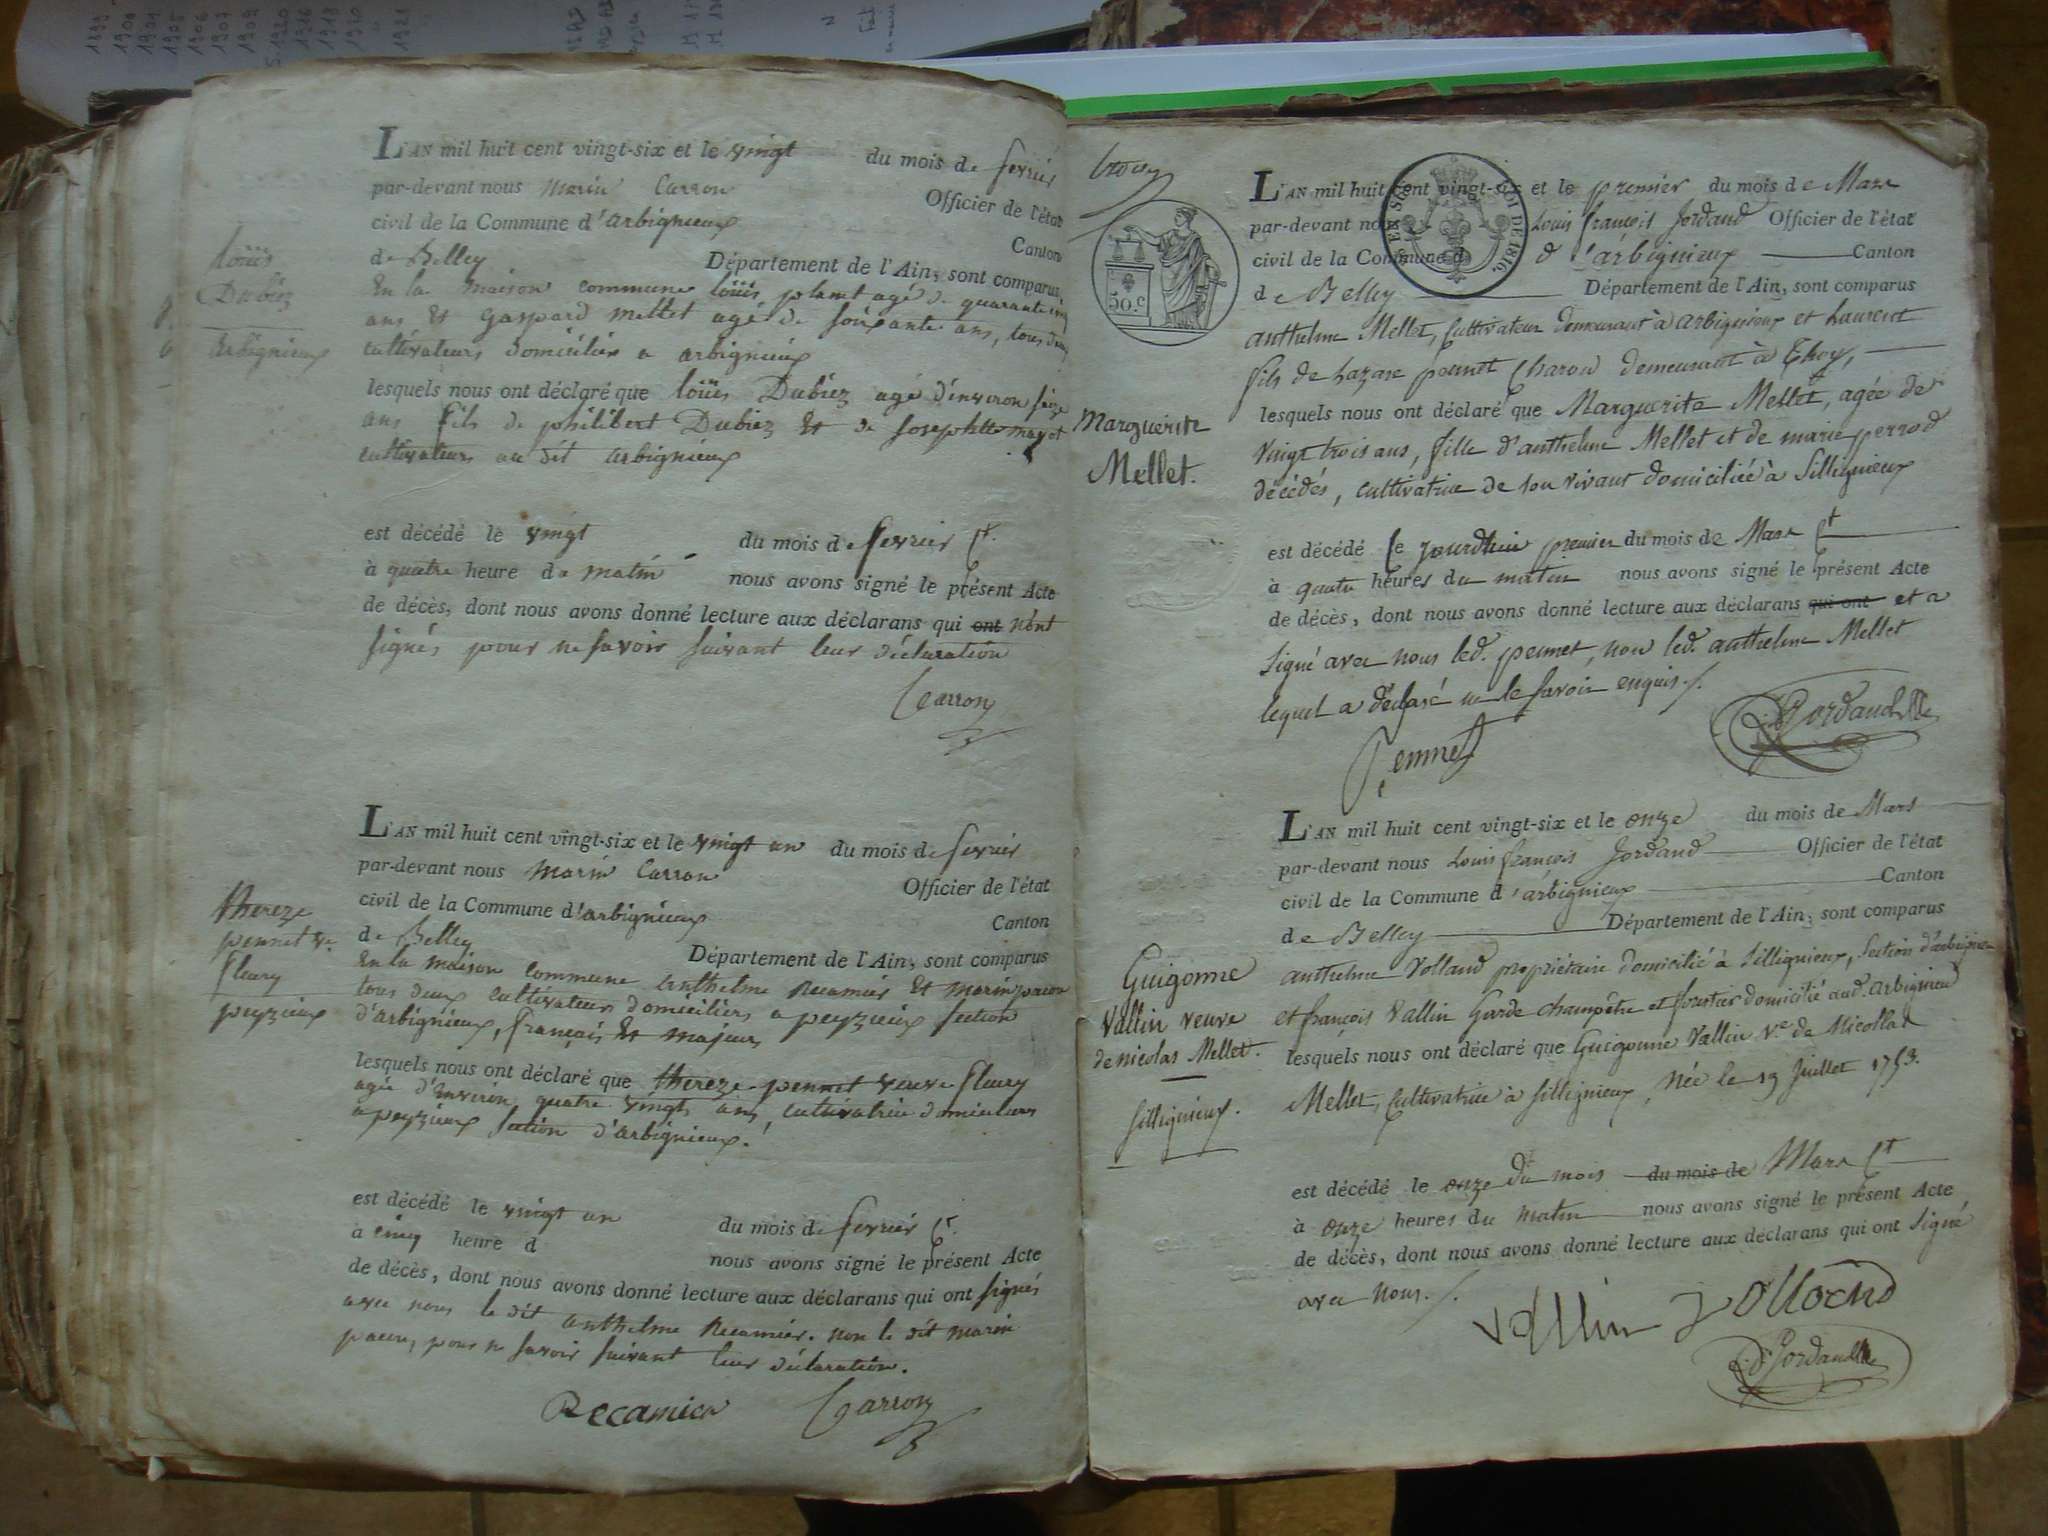 1899
1900
1901
1905
1906
1907
1909
1920
1916
1918
1920
1921
L'AN mil huit cent vingt-six et le vingt du mois de fevrier
par-devant nous Marin Carron Officier de l'état
civil de la Commune d'arbignieux Canton
de Belley Département de l'Ain, sont comparus
En la maison commune loüis planet agé de quarante cinq
ans Et Gaspard Mellet agé de soixante ans, tous deux
cultivateurs domiciliés a arbignieux
lesquels nous ont déclaré que loüis Dubiez agé d'environ seize
ans fils de philibert Dubiez Et de Josephtte mayot
cultivateurs au dit arbignieux
est décédé le vingt du mois de fevrier Ct.
à quatre heure du matin nous avons signé le présent Acte
de décès, dont nous avons donné lecture aux déclarans qui ont n'ont
signés pour ne savoir suivant leur déclaration
Carron
loüis
Dubiez
arbignieux
L'AN mil huit cent vingt-six et le vingt un du mois de fevrier
par-devant nous Marin Carron Officier de l'état
civil de la Commune d'arbignieux Canton
de Belley Département de l'Ain, sont comparus
En la maison commune anthelme Recamier Et marin pacon
tous deux cultivateurs domiciliers a peyzieux section
d'arbignieux, français Et majeurs
lesquels nous ont déclaré que thereze pennet veuve fleury
agée d'environ quatre vingts ans, cultivatrice domiciliers
a peyzieux section d'arbignieux.
est décédé le vingt un du mois de fevrier Ct.
à cinq heure d nous avons signé le présent Acte
de décès, dont nous avons donné lecture aux déclarans qui ont signés
avec nous le dit anthelme Recamier. non le dit marin
pacon, pour ne savoir suivant leur déclaration.
Recamier Carron
thereze
pennet ve.
fleury
peyzieux
50.C
EN SUS LOI DE 1816.
L'AN mil huit cent vingt-six et le premier du mois de Mars
par-devant nous Louis françois Jordand Officier de l'état
civil de la Commune d d'arbignieux Canton
de Belley Département de l'Ain, sont comparus
anthelme Mellet, Cultivateur demeurant à arbignieux et Laurent
fils de Lazare pennet Charon demeurant à Thoy,
lesquels nous ont déclaré que Marguerite Mellet, agée de
vingt trois ans, fille d'anthelme Mellet et de marie perrod
décédés, cultivatrice de son vivant domiciliée à Sillignieux
est décédé Ce jourdhui premier du mois de Mars Ct
à quatre heures du matin nous avons signé le présent Acte
de décès, dont nous avons donné lecture aux déclarans qui ont et a
signé avec nous led. pennet, non led. anthelme Mellet
lequel a déclaré ne le savoir enquis./.
Pennet Jordand
Marguerite
Mellet.
L'AN mil huit cent vingt-six et le onze du mois de Mars
par-devant nous Louis françois Jordand Officier de l'état
civil de la Commune d'arbignieux Canton
de Belley Département de l'Ain, sont comparus
anthelme Volland propriétaire domicilié à Sillignieux, section d'arbignieux
et françois Vallin Garde champêtre et foretier domicilié aud. arbignieux
lesquels nous ont déclaré que Guigonne Vallin ve. de Nicollas
Mellet, Cultivatrice à Sillignieux, Née le 19 Juillet 1753.
est décédé le onze du mois du mois de Mars Ct
à onze heures du matin nous avons signé le présent Acte
de décès, dont nous avons donné lecture aux déclarans qui ont signé
avec nous./.
vallin volland
Jordand
Guigonne
Vallin veuve
de nicolas Mellet.
Sillignieux.